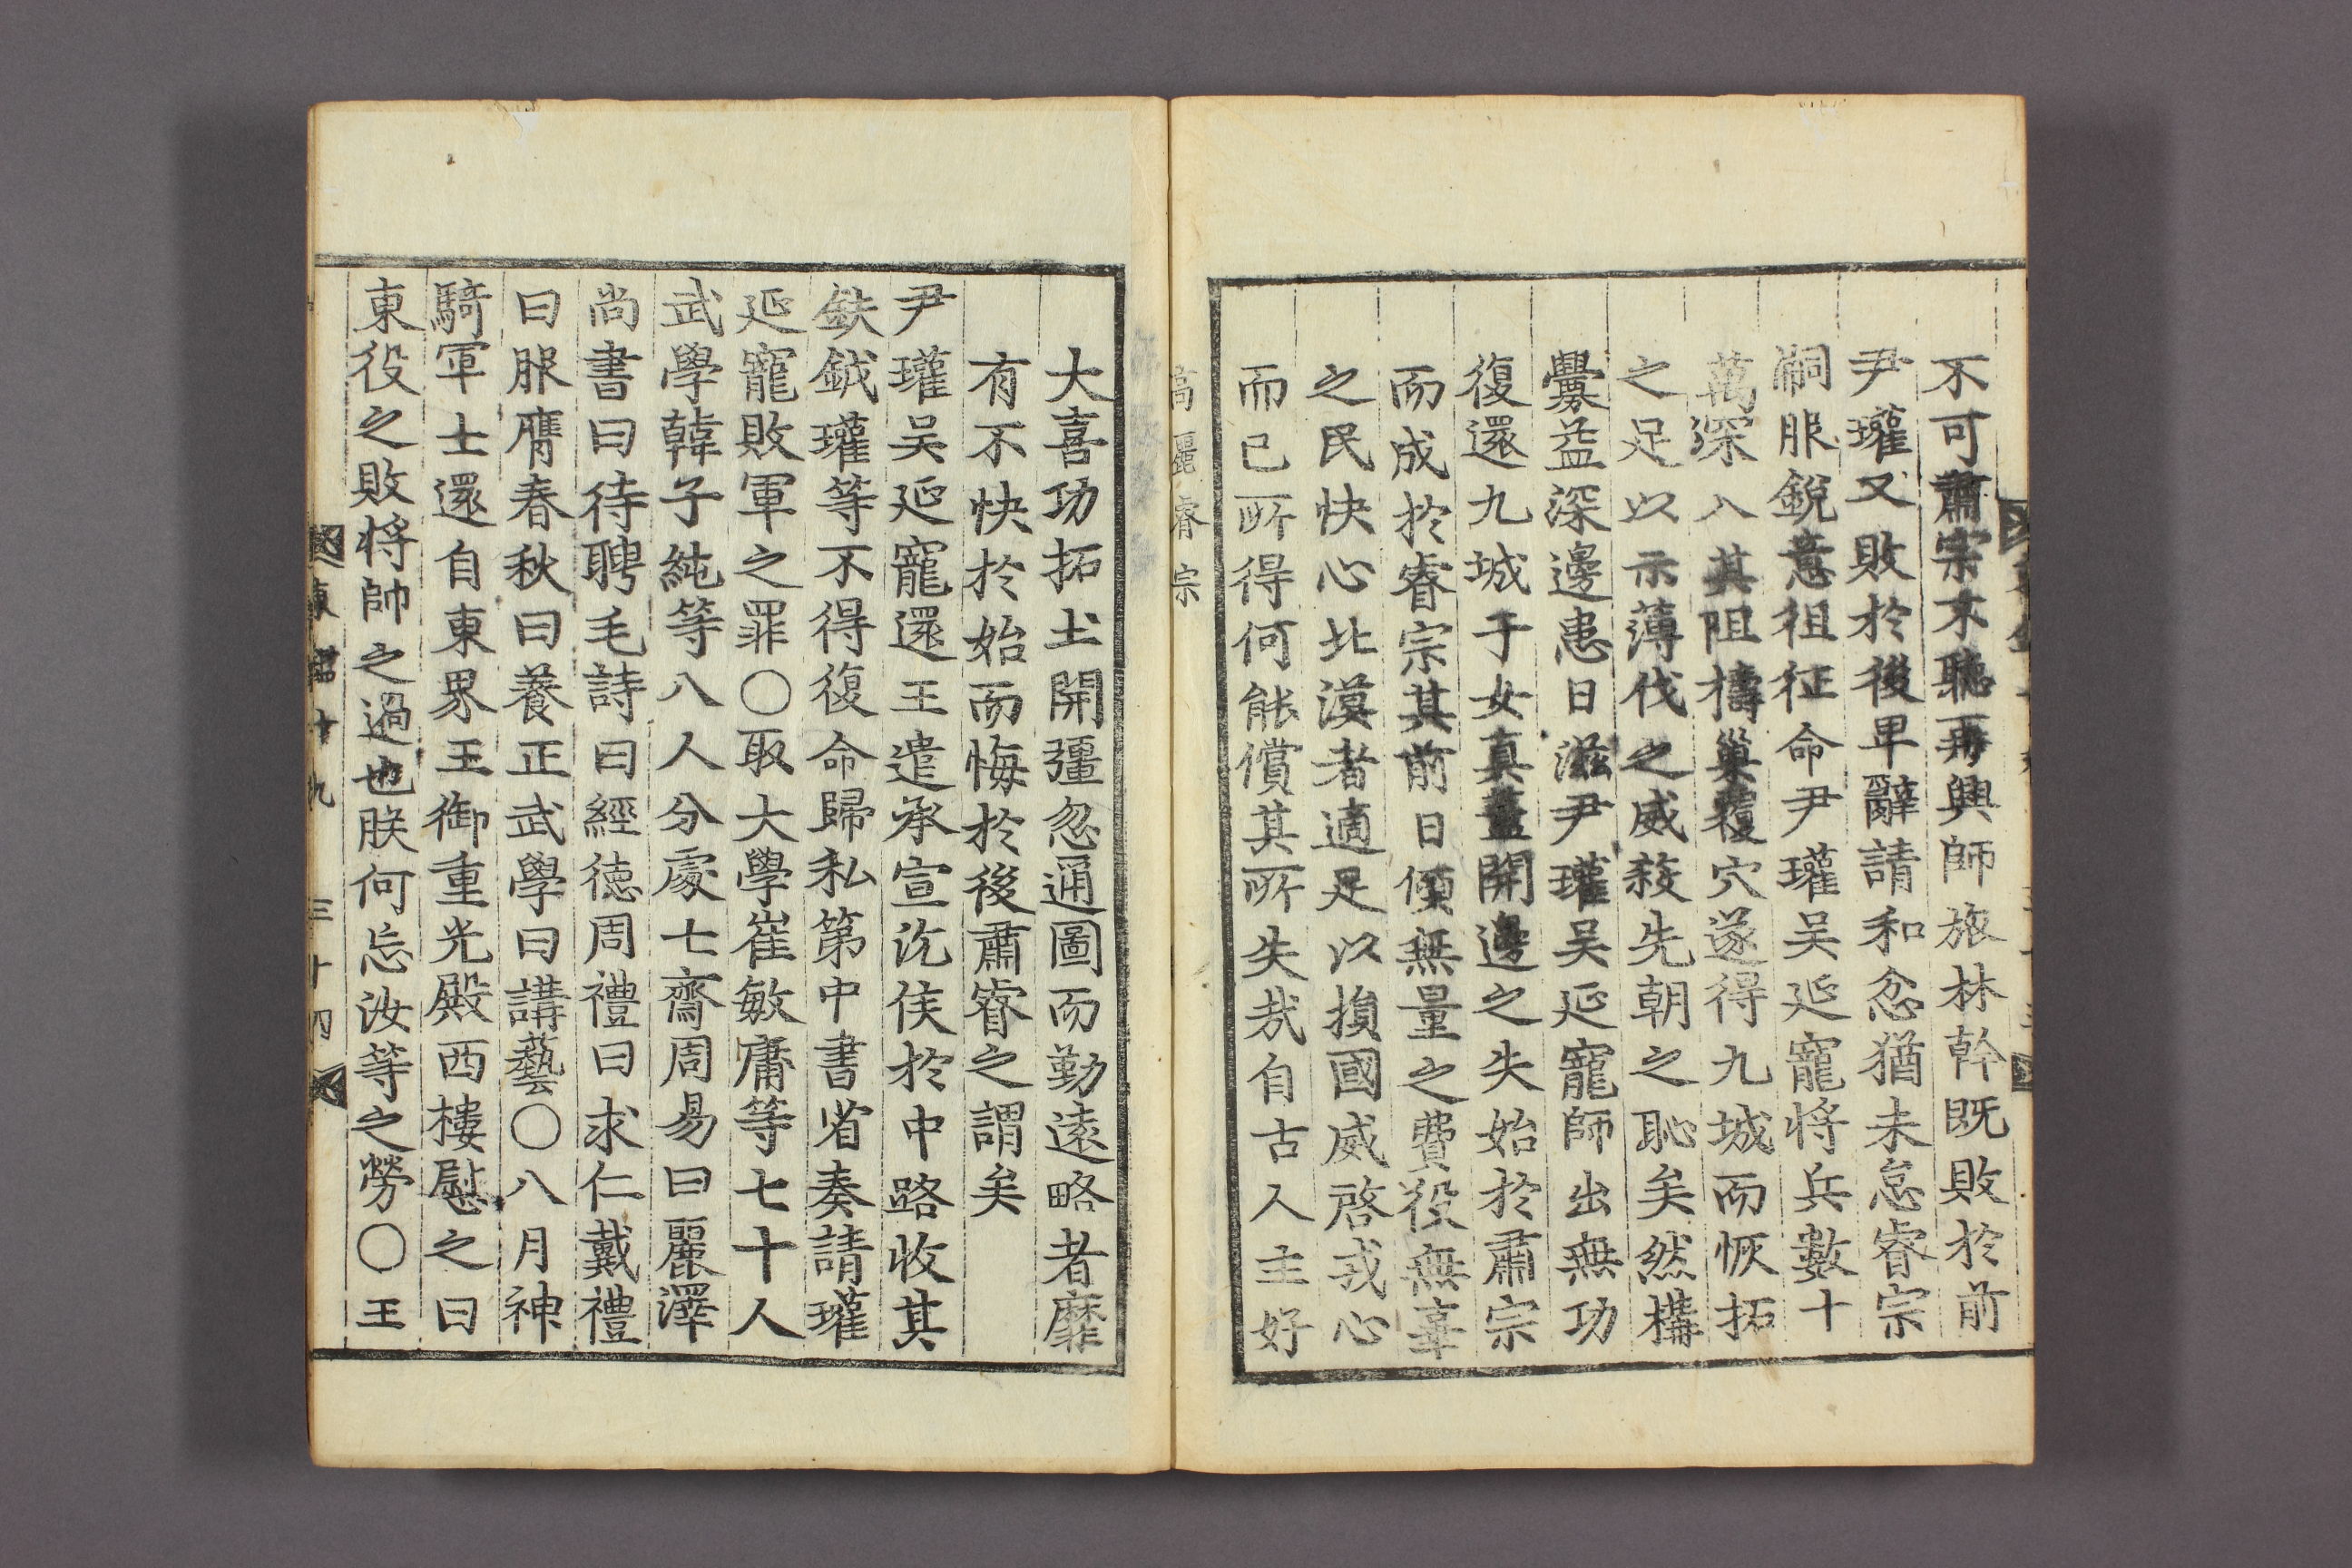 不可肅宗不聽再興師旅林幹既敗於前
尹瓘又敗於後卑辭請和忿猶未怠睿宗
嗣服銳意徂征命尹瓘吳延寵将兵數十
萬深入其阻擣巢覆穴遂得九城而恢拓
之足以示薄伐之威殺先朝之恥矣然構
釁益深邊患日滋尹瓘吳延寵師出無功
復還九城于女真蓋開邊之失始於肅宗
而成於睿宗其前日傾無量之費役無辜
之民快心北漠者適足以損國威啓戎心
而已所得何能償其所失哉自古人主好
高麗睿宗
大喜功拓土開疆忽邇圖而勤遠略者靡
有不快於始而悔於後肅睿之謂矣
尹瓘吳延寵還王遣承宣沈侯於中路收其
鈇鉞瓘等不得復命歸私第中書省奏請瓘
延寵敗軍之罪○取大學崔敏庸等七十人
武學韓子純等八人分處七齋周易曰麗澤
尚書曰待聘毛詩曰經德周禮曰求仁戴禮
曰服膺春秋曰養正武學曰講藝○八月神
騎軍士還自東界王御重光殿西樓慰之曰
東役之敗将帥之過也朕何忘汝等之勞○王
東鑑十九 三十四